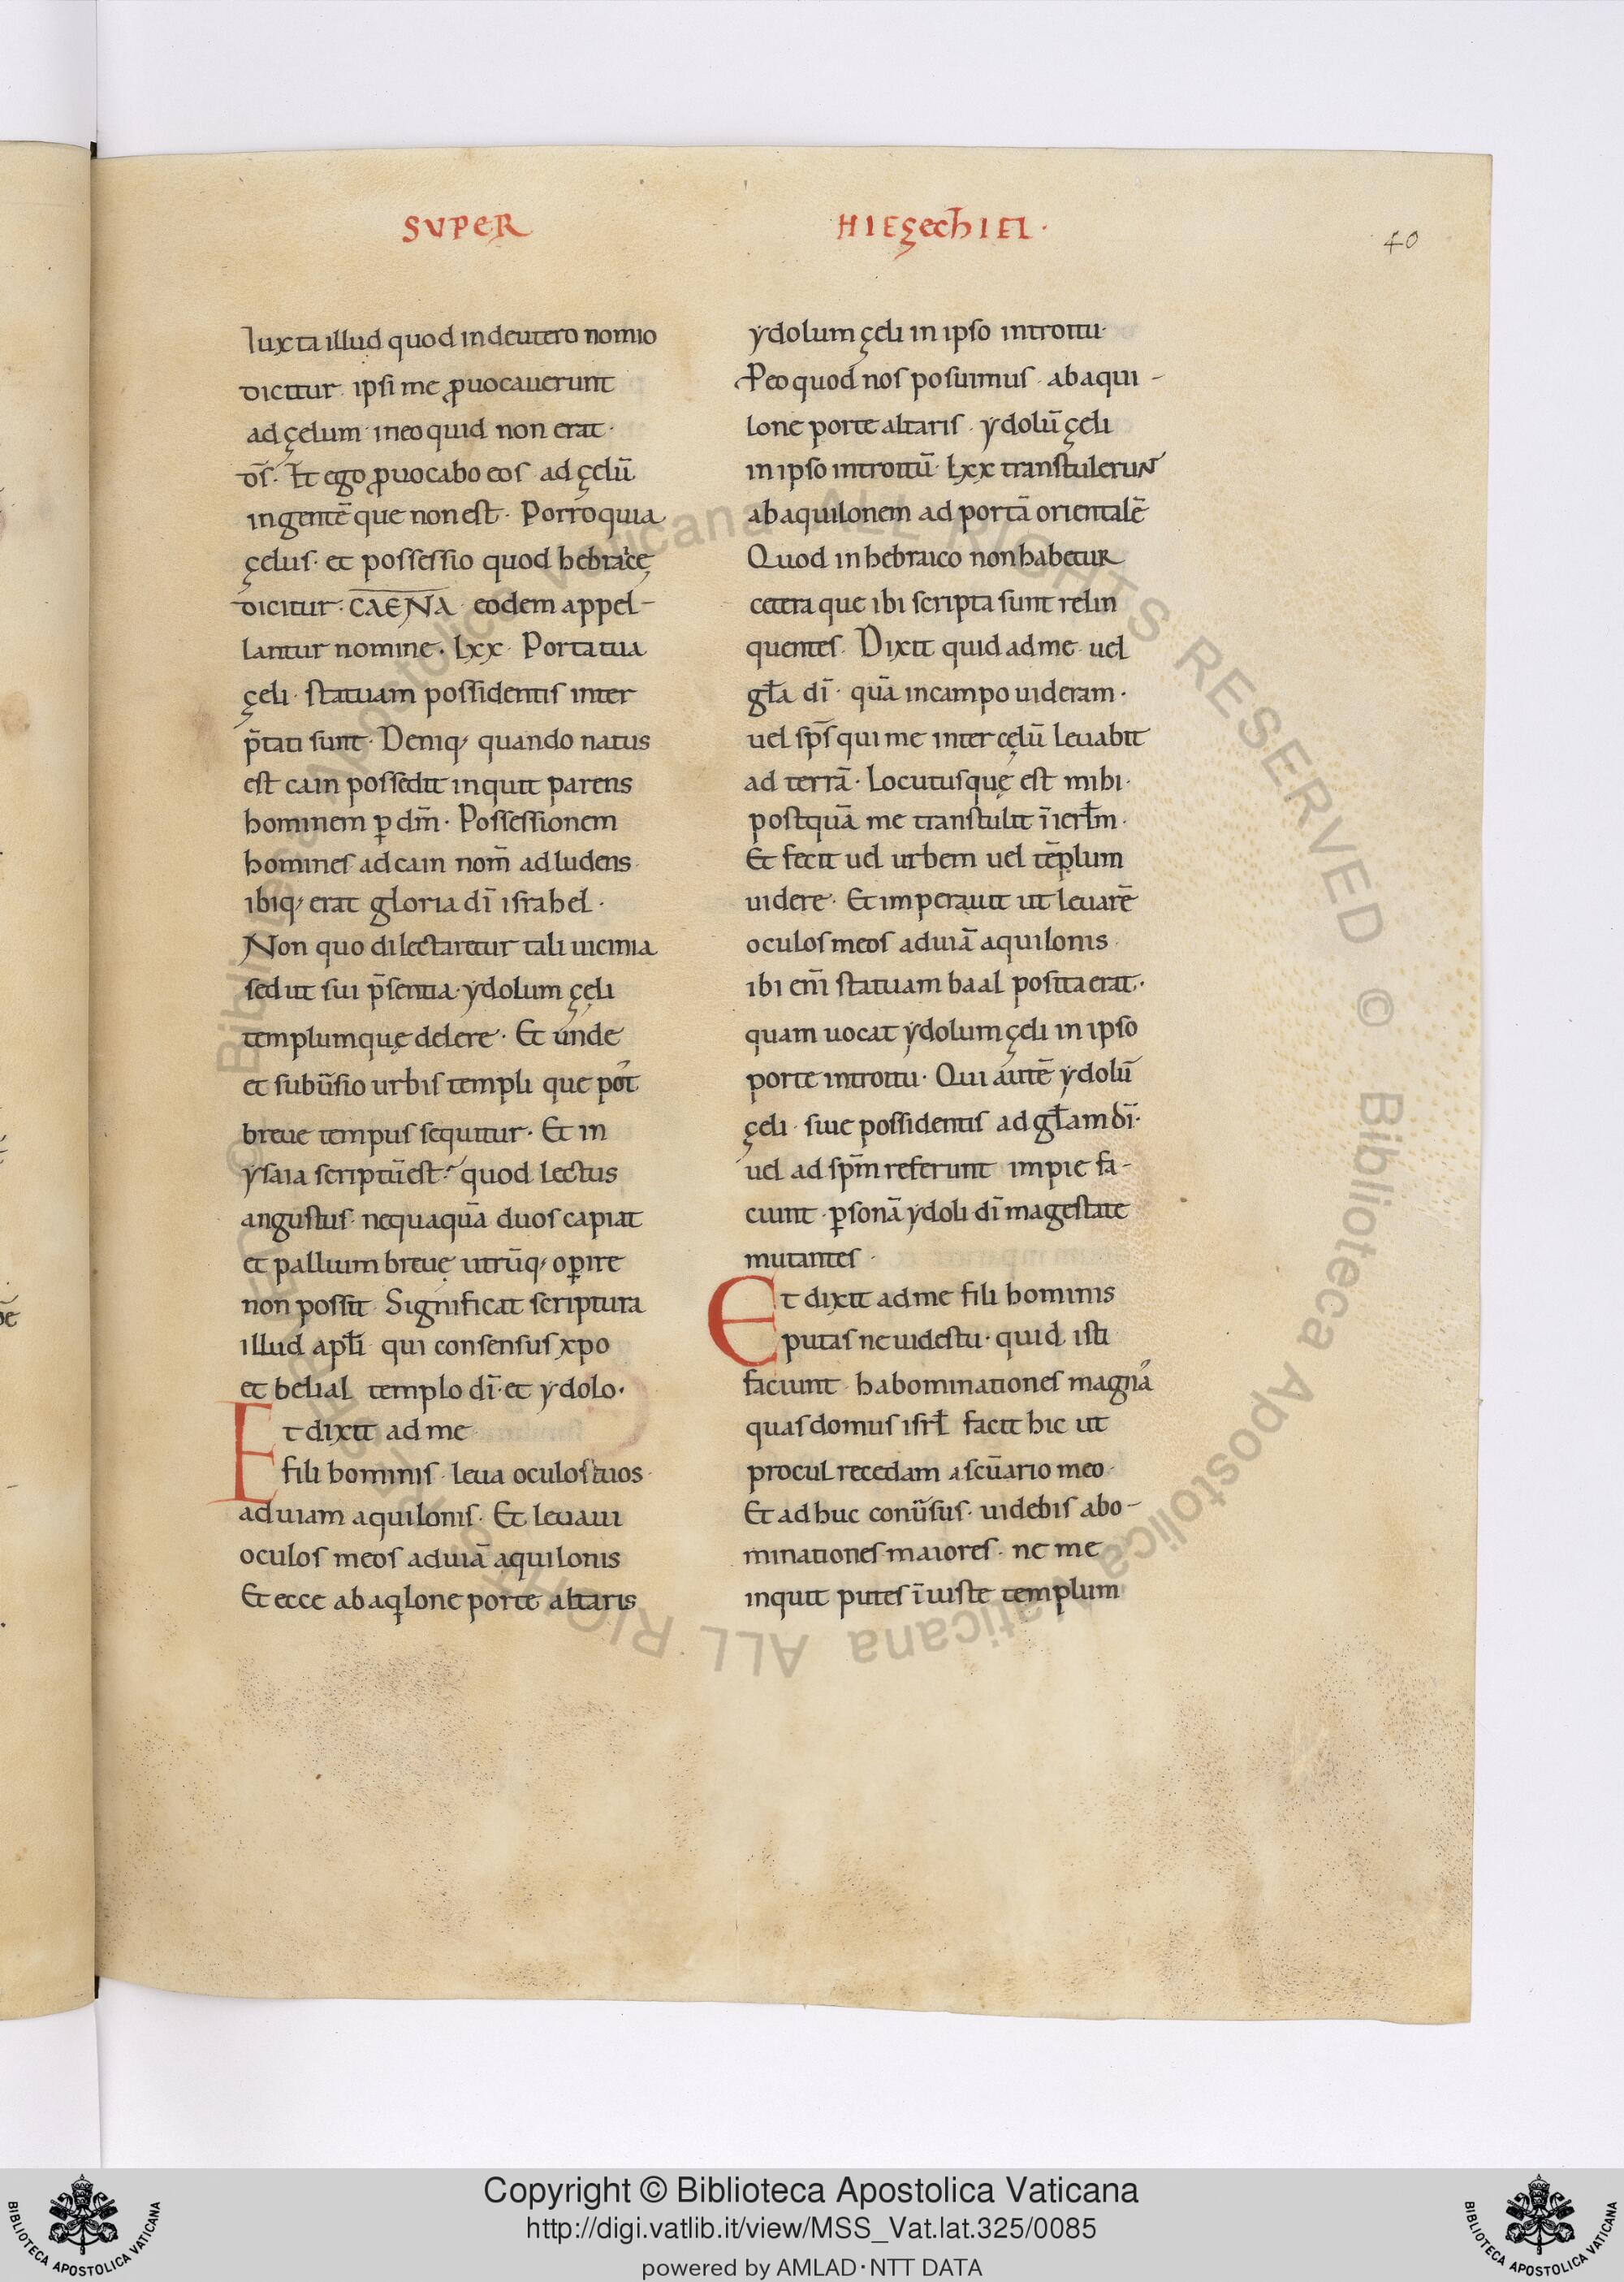 SUPER
HIEzechIEL·
40
Iuxta illud quod in deutero nomio
dicitur· ipsi me ꝓuocauerunt
ad çelum· in eo quid non erat·
ds̄· Et ego ꝓuocabo eos ad çelū
in gentē que non est· Porro quia
çelus· et possessio quod hebraice
dicitur· CAENA· eodem appel-
lantur nomine· Lxx· Porta tua
çeli· statuam possidentis inter
p̄tati sunt· Deniq; quando natus
est cain possedit inquit parens
hominem ꝑ dm̄· Possessionem
homines ad cain nom̄ ad ludens·
ibiq; erat gloria dī israhel·
Non quo dilectaretur tali uicinia
sed ut sui p̄sentia· ydolum çeli
templumquę delere· Et unde
et subūsio urbis templi que pōt
breue tempus sequitur· Et in
ysaia scriptū est· quod lectus
angustus· nequaquā duos capiat
et pallium breuę utrūq; oꝑire
non possit· Significat scriptura
illud apłi· qui consensus xpo
et belial templo dī· et ydolo·
Et dixit ad me
fili hominis· leua oculos tuos·
ad uiam aquilonis· Et leuaui
oculos meos ad uiā aquilonis
Et ecce ab aqlone porte altaris
ydolum çeli in ipso introitu·
P eo quod nos posuimus· ab aqui-
lone porte altaris· ydolū çeli
in ipso introitū· Lxx transtulerunt
ab aquilonem ad portā orientalē
Quod in hebraico non habetur
cetera que ibi scripta sunt relin
quentes· Dixit quid ad me· uel
gła dī· quā in campo uideram·
uel sps̄ qui me inter cęlū leuabit
ad terrā· Locutusquę est mihi·
postquā me transtulit ī ierłm·
Et fecit uel urbem uel tēplum
uidere· Et imperauit ut leuarē
oculos meos ad uiā aquilonis·
ibi enī statuam baal posita erat·
quam uocat ydolum çeli in ipso
porte introitu· Qui autē ydolū
çeli· siue possidentis ad głam dī·
uel ad spm̄ referunt impie fa-
ciunt· ꝑsonā ydoli dī magestate
mutantes·
Et dixit ad me fili hominis
putas ne uides tu· quid isti
faciunt· habominationes magna
quas domus isrł facit hic ut
procul recedam a scūario meo·
Et ad huc conūsus· uidebis abo-
minationes maiores· ne me
inquit putes īuiste templum
Copyright © Biblioteca Apostolica Vaticana
http://digi.vatlib.it/view/MSS_Vat.lat.325/0085
powered by AMLAD·NTT DATA
BIBLIOTECA APOSTOLICA VATICANA
BIBLIOTECA APOSTOLICA VATICANA